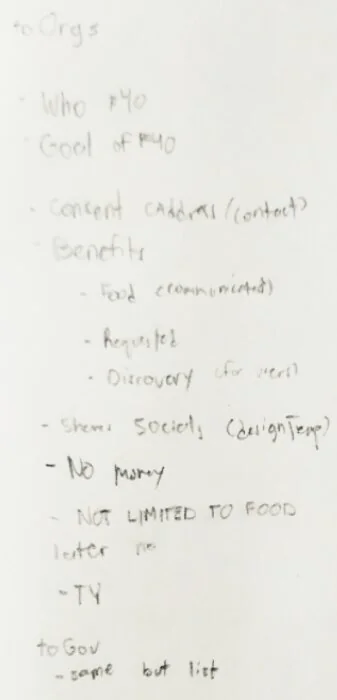 to Orgs
- Who F4O
- Goal of F4O
- Consent (Address/contact)
- Benefits
- Food (communicated)
- Requested
- Discovery (for users)
- Shares Socials (design Temp)
- No money
- NOT LIMITED TO FOOD
later
- TY
to Gov
- same but list